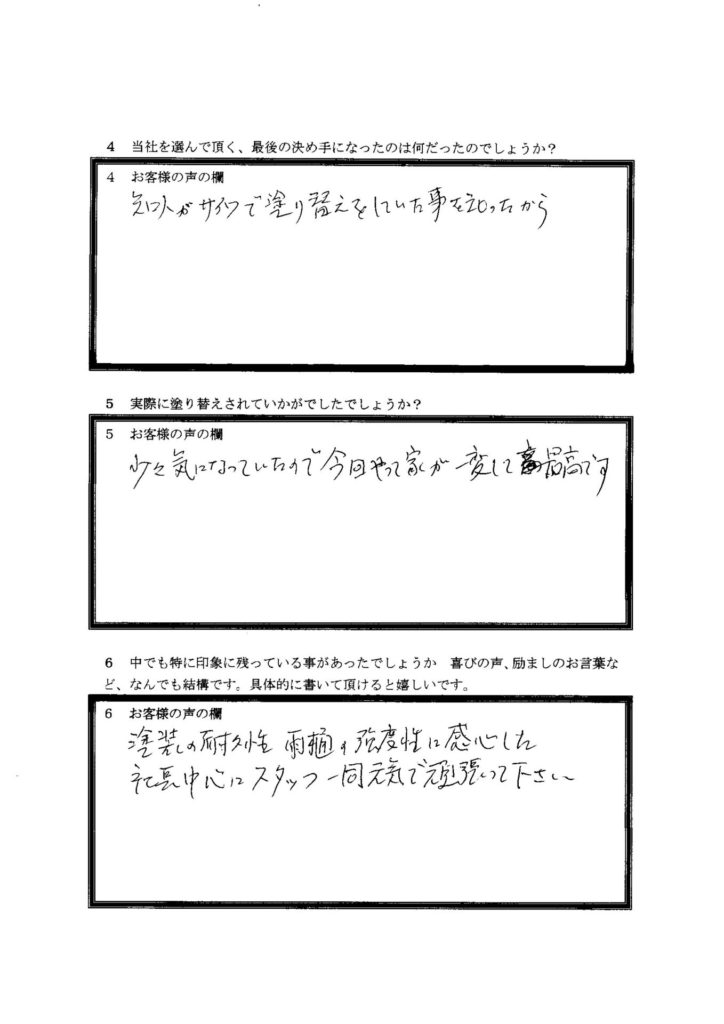 4 当社を選んで頂く、最後の決め手になったのは何だったのでしょうか？
4 お客様の声の欄
知人がサイワで塗り替えをしていた事を知ったから
5 実際に塗り替えされていかがでしたでしょうか？
5 お客様の声の欄
少々気になっていたので今回やって家が一変して最高です
6 中でも特に印象に残っている事があったでしょうか 喜びの声、励ましのお言葉な
ど、なんでも結構です。具体的に書いて頂けると嬉しいです。
6 お客様の声の欄
塗装の耐久性 雨樋の強度性に感心した
社長中心にスタッフ一同元気で頑張って下さい